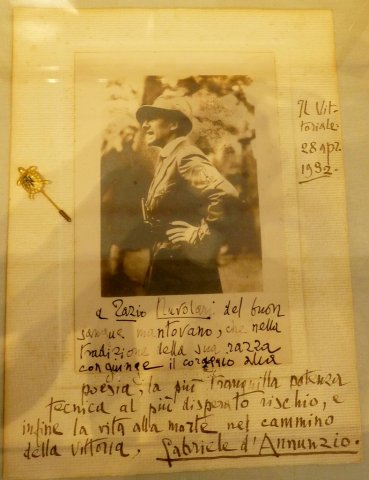 Il Vit-
toriale:
28 apr.
1932.
a Tazio Nuvolari del buon
sangue mantovano, che nella
tradizione della sua razza
congiunge il coraggio alla
poesia, la più tranquilla potenza
tecnica al più disperato rischio, e
infine la vita alla morte nel cammino
della vittoria. Gabriele d'Annunzio.